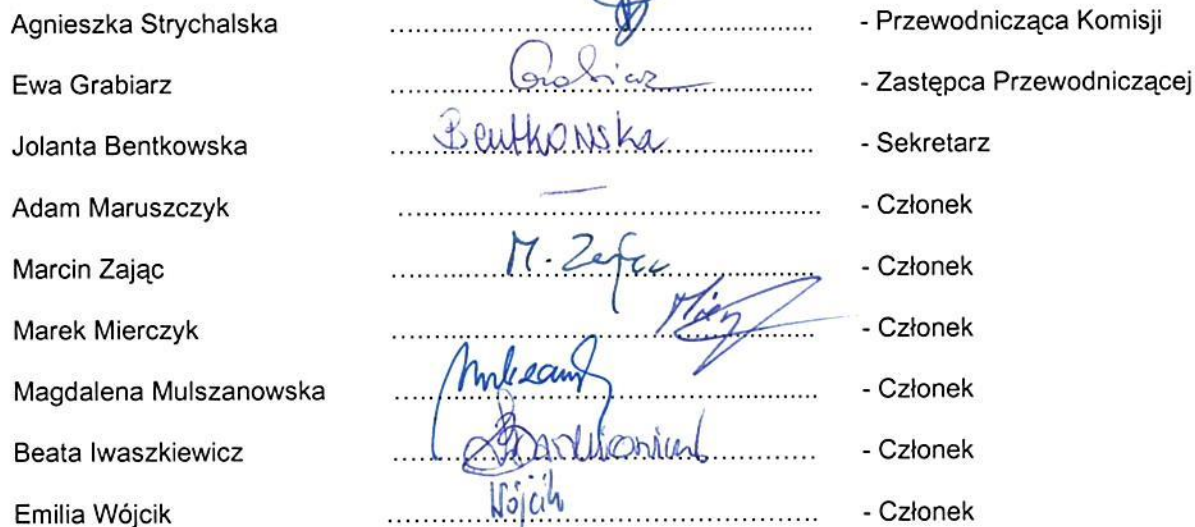 Agnieszka Strychalska ........................................................ - Przewodnicząca Komisji
Ewa Grabiarz ........................................................ - Zastępca Przewodniczącej
Jolanta Bentkowska ............Bentkowska............ - Sekretarz
Adam Maruszczyk ............—............ - Członek
Marcin Zając ............M. Zając............ - Członek
Marek Mierczyk ........................................................ - Członek
Magdalena Mulszanowska ........................................................ - Członek
Beata Iwaszkiewicz ........................................................ - Członek
Emilia Wójcik ............Wójcik............ - Członek